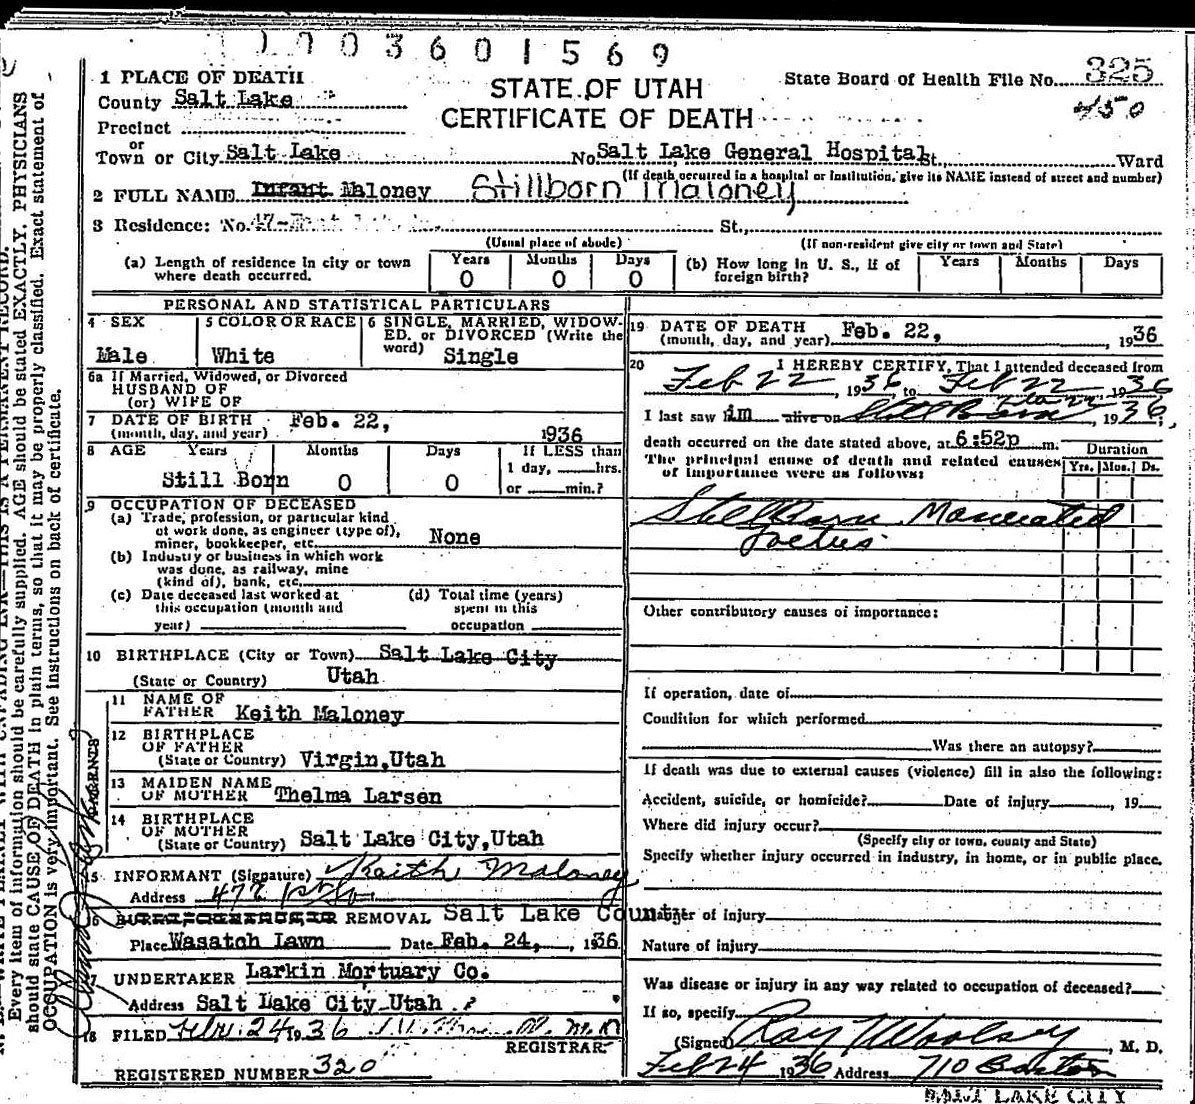 1003601569
1 PLACE OF DEATH
STATE OF UTAH
State Board of Health File No. 325
County Salt Lake
CERTIFICATE OF DEATH
450
Precinct
or
Town or City Salt Lake No. Salt Lake General Hospital St., Ward
(If death occurred in a hospital or institution, give its NAME instead of street and number)
2 FULL NAME Infant Maloney Stillborn Maloney
3 Residence: No. 47 St.,
(Usual place of abode) (If non-resident give city or town and State)
(a) Length of residence in city or town where death occurred. Years 0 Months 0 Days 0
(b) How long in U. S., if of foreign birth? Years Months Days
PERSONAL AND STATISTICAL PARTICULARS
4 SEX Male
5 COLOR OR RACE White
6 SINGLE, MARRIED, WIDOWED, or DIVORCED (Write the word) Single
6a If Married, Widowed, or Divorced
HUSBAND OF
(or) WIFE OF
7 DATE OF BIRTH Feb. 22,
(month, day, and year) 1936
8 AGE Years Months Days If LESS than
1 day, hrs.
Still Born 0 0 or min.?
9 OCCUPATION OF DECEASED
(a) Trade, profession, or particular kind
of work done, as engineer (type of),
miner, bookkeeper, etc. None
(b) Industry or business in which work
was done, as railway, mine
(kind of), bank, etc.
(c) Date deceased last worked at
this occupation (month and
year)
(d) Total time (years)
spent in this
occupation
10 BIRTHPLACE (City or Town) Salt Lake City
(State or Country) Utah
11 NAME OF
FATHER Keith Maloney
12 BIRTHPLACE
OF FATHER
(State or Country) Virgin, Utah
13 MAIDEN NAME
OF MOTHER Thelma Larsen
14 BIRTHPLACE
OF MOTHER
(State or Country) Salt Lake City, Utah
PARENTS
15 INFORMANT (Signature) Keith Maloney
Address 47 E 1st So
16 REMOVAL Salt Lake County
Place Wasatch Lawn Date Feb. 24, 1936
17 UNDERTAKER Larkin Mortuary Co.
Address Salt Lake City Utah
18 FILED Febr. 24 1936
REGISTRAR
REGISTERED NUMBER 320
19 DATE OF DEATH
(month, day, and year) Feb. 22, 1936
20 I HEREBY CERTIFY, That I attended deceased from
Feb 22, 1936 to Feb 22 1936
I last saw him alive on Still Born Feb 22, 1936,
death occurred on the date stated above, at 6:52p m.
The principal cause of death and related causes
of importance were as follows:
Duration
Yrs. Mos. Ds.
Still Born Macerated
Foetus
Other contributory causes of importance:
If operation, date of
Condition for which performed
Was there an autopsy?
If death was due to external causes (violence) fill in also the following:
Accident, suicide, or homicide? Date of injury, 19
Where did injury occur?
(Specify city or town, county and State)
Specify whether injury occurred in industry, in home, or in public place.
Manner of injury
Nature of injury
Was disease or injury in any way related to occupation of deceased?
If so, specify
(Signed) Ray T Woolsey, M. D.
Feb 24 1936 Address 710 Boston
SALT LAKE CITY
Every item of information should be carefully supplied. AGE should be stated EXACTLY. PHYSICIANS
should state CAUSE OF DEATH in plain terms, so that it may be properly classified. Exact statement of
OCCUPATION is very important. See instructions on back of certificate.